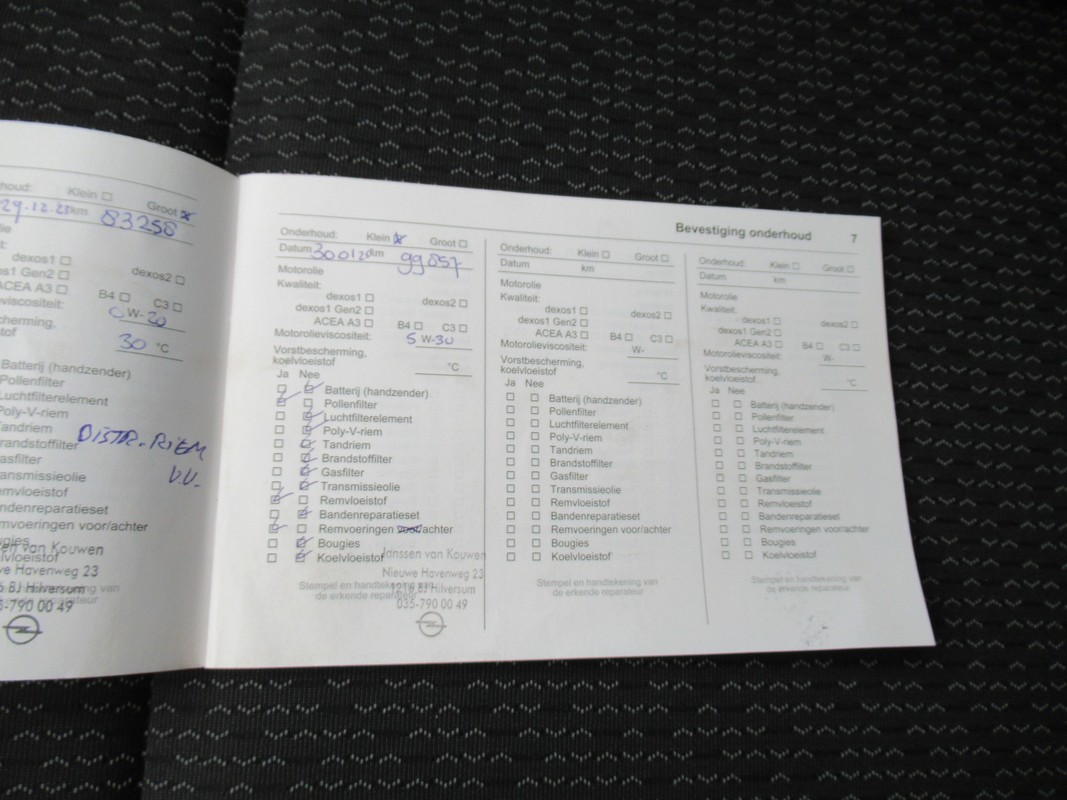 houd: Klein ☐ Groot ☒
29.12.23 km 83258
dexos1 ☐ dexos2 ☐
s1 Gen2 ☐
ACEA A3 ☐ B4 ☐ C3 ☐
lieviscositeit: 0 W-20
cherming,
stof 30 °C
Batterij (handzender)
Pollenfilter
Luchtfilterelement
Poly-V-riem
Tandriem DISTR.-RIEM
Brandstoffilter V.V.
Gasfilter
ansmissieolie
emvloeistof
andenreparatieset
mvoeringen voor/achter
ougies
sen van Kouwen
lvloeistof
we Havenweg 23
6 BJ Hilversum
5-790 00 49
Bevestiging onderhoud 7
Onderhoud: Klein ☒ Groot ☐
Datum km 99857
Motorolie
Kwaliteit:
dexos1 ☐ dexos2 ☐
dexos1 Gen2 ☐
ACEA A3 ☐ B4 ☐ C3 ☐
Motorolieviscositeit: 5 W-30
Vorstbescherming,
koelvloeistof °C
Ja Nee
☐ ☑ Batterij (handzender)
☑ ☐ Pollenfilter
☐ ☑ Luchtfilterelement
☐ ☑ Poly-V-riem
☐ ☑ Tandriem
☐ ☑ Brandstoffilter
☐ ☑ Gasfilter
☐ ☑ Transmissieolie
☑ ☐ Remvloeistof
☐ ☑ Bandenreparatieset
☑ ☐ Remvoeringen voor/achter
☐ ☑ Bougies
☐ ☑ Koelvloeistof
Janssen van Kouwen
Nieuwe Havenweg 23
Stempel en handtekening van
1216 BJ Hilversum
de erkende reparateur
035-790 00 49
Onderhoud: Klein ☐ Groot ☐
Datum km
Motorolie
Kwaliteit:
dexos1 ☐ dexos2 ☐
dexos1 Gen2 ☐
ACEA A3 ☐ B4 ☐ C3 ☐
Motorolieviscositeit: W-
Vorstbescherming,
koelvloeistof °C
Ja Nee
☐ ☐ Batterij (handzender)
☐ ☐ Pollenfilter
☐ ☐ Luchtfilterelement
☐ ☐ Poly-V-riem
☐ ☐ Tandriem
☐ ☐ Brandstoffilter
☐ ☐ Gasfilter
☐ ☐ Transmissieolie
☐ ☐ Remvloeistof
☐ ☐ Bandenreparatieset
☐ ☐ Remvoeringen voor/achter
☐ ☐ Bougies
☐ ☐ Koelvloeistof
Stempel en handtekening van
de erkende reparateur
Onderhoud: Klein ☐ Groot ☐
Datum km
Motorolie
Kwaliteit:
dexos1 ☐ dexos2 ☐
dexos1 Gen2 ☐
ACEA A3 ☐ B4 ☐ C3 ☐
Motorolieviscositeit: W-
Vorstbescherming,
koelvloeistof °C
Ja Nee
☐ ☐ Batterij (handzender)
☐ ☐ Pollenfilter
☐ ☐ Luchtfilterelement
☐ ☐ Poly-V-riem
☐ ☐ Tandriem
☐ ☐ Brandstoffilter
☐ ☐ Gasfilter
☐ ☐ Transmissieolie
☐ ☐ Remvloeistof
☐ ☐ Bandenreparatieset
☐ ☐ Remvoeringen voor/achter
☐ ☐ Bougies
☐ ☐ Koelvloeistof
Stempel en handtekening van
de erkende reparateur